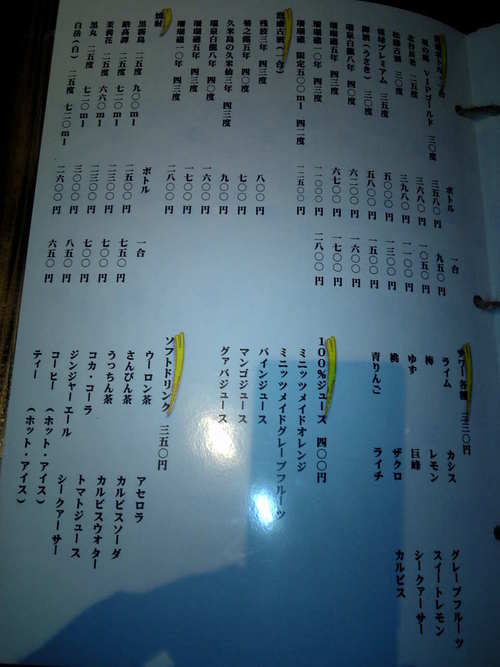 ボトル 一合
VIPゴールド 三〇度 三五八〇円 九五〇円
北谷長老 二五度 三六八〇円 一〇五〇円
松藤古酒 三〇度 三九八〇円 一一〇〇円
プレミアム 三五度 五〇〇〇円 一三〇〇円
御酒(うさき) 三〇度 五八〇〇円 一五〇〇円
白龍八年 四〇度 六二〇〇円 一六〇〇円
珊瑚礁五年 四三度 六七〇〇円 一七〇〇円
珊瑚礁一〇年 四三度 一一〇〇〇円 二八〇〇円
珊瑚礁 限定五〇〇ml 四二度 一二五〇〇円
泡盛古酒(一合)
残波三年 四三度 八〇〇円
菊之露五年 四〇度 七〇〇円
久米島の久米仙三年 四三度 九〇〇円
白龍八年 四〇度 一六〇〇円
珊瑚礁五年 四三度 一七〇〇円
珊瑚礁一〇年 四三度 二八〇〇円
焼酎
ボトル 一合
黒霧島 二五度 九〇〇ml 二五〇〇円 七五〇円
二五度 七二〇ml 二三〇〇円 七〇〇円
茉莉花 二五度 六六〇ml 二三〇〇円 七〇〇円
黒丸 二五度 七二〇ml 三〇〇〇円 八五〇円
白岳(白) 二五度 七二〇ml 二六〇〇円 六五〇円
サワー各種 三三〇円
ライム カシス グレープフルーツ
梅 レモン スイートレモン
ゆず 巨峰 シークァーサー
桃 ザクロ カルピス
青りんご ライチ
100%ジュース 四〇〇円
ミニッツメイドオレンジ
ミニッツメイドグレープフルーツ
パインジュース
マンゴジュース
グァバジュース
ソフトドリンク 三五〇円
ウーロン茶 アセロラ
さんぴん茶 カルピスソーダ
うっちん茶 カルピスウオター
コカ・コーラ トマトジュース
ジンジャーエール シークァーサー
コーヒー (ホット・アイス)
ティー (ホット・アイス)